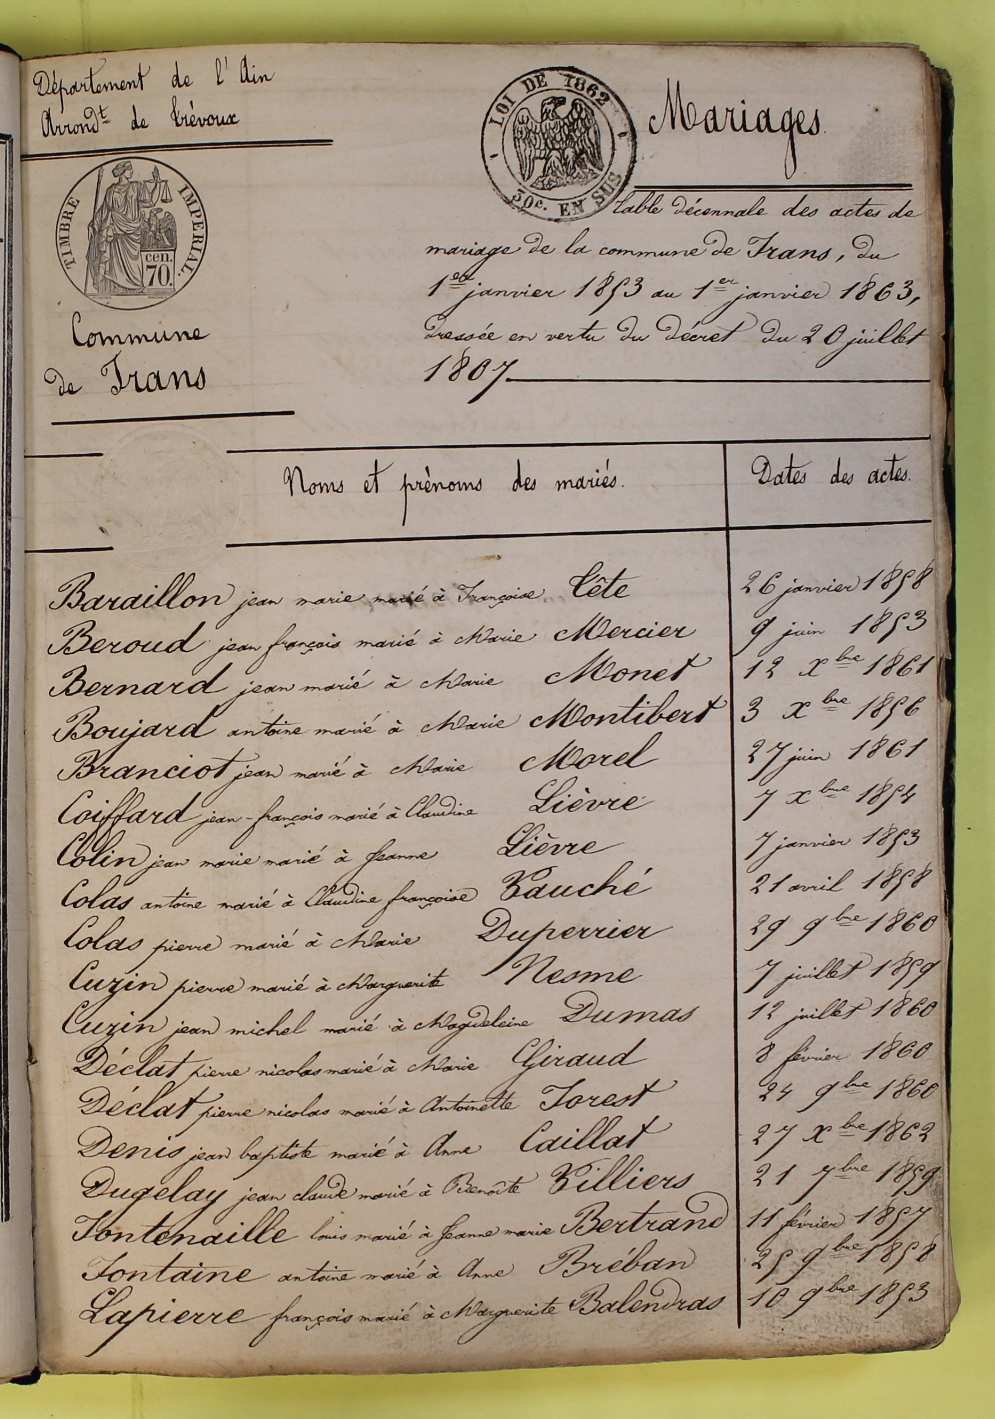 Département de l'Ain
Arrondt de Trévoux
LOI DE 1862
30c. EN SUS
Mariages.
TIMBRE IMPERIAL.
cen.
70.
Commune
de Frans
Table décennale des actes de
mariage de la commune de Frans, du
1er janvier 1853 au 1er janvier 1863,
dressée en vertu du décret du 20 juillet
1807
Noms et prénoms des mariés. Dates des actes.
Baraillon jean marie marié à Françoise Tête 26 janvier 1858
Beroud jean françois marié à Marie Mercier 9 juin 1853
Bernard jean marié à Marie Monet 12 Xbre 1861
Boujard antoine marié à Marie Montibert 3 Xbre 1856
Branciot jean marié à Marie Morel 27 juin 1861
Coiffard jean-françois marié à Claudine Lièvre 7 Xbre 1854
Colin jean marie marié à Jeanne Lièvre 7 janvier 1853
Colas antoine marié à Claudine françoise Pauché 21 avril 1858
Colas pierre marié à Marie Duperrier 29 9bre 1860
Cuzin pierre marié à Marguerite Nesme 7 juillet 1859
Cuzin jean michel marié à Magdeleine Dumas 12 juillet 1860
Déclat pierre nicolas marié à Marie Giraud 8 février 1860
Déclat pierre nicolas marié à Antoinette Forest 24 9bre 1860
Denis jean baptiste marié à Anne Caillat 27 Xbre 1862
Dugelay jean claude marié à Benoîte Villiers 21 7bre 1859
Fontenaille louis marié à Jeanne marie Bertrand 11 février 1857
Fontaine antoine marié à Anne Bréban 25 9bre 1858
Lapierre françois marié à Marguerite Balendras 10 9bre 1853